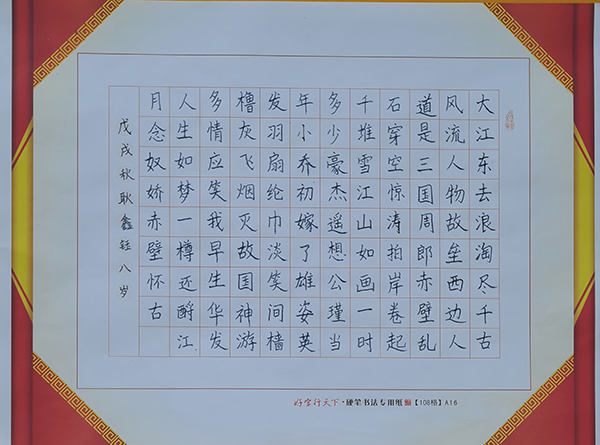 大江东去浪淘尽千古
风流人物故垒西边人
道是三国周郎赤壁乱
石穿空惊涛拍岸卷起
千堆雪江山如画一时
多少豪杰遥想公瑾当
年小乔初嫁了雄姿英
发羽扇纶巾淡笑间樯
橹灰飞烟灭故国神游
多情应笑我早生华发
人生如梦一樽还酹江
月念奴娇赤壁怀古
戊戌秋耿鑫钰八岁
好字行天下·硬笔书法专用纸【108格】A16